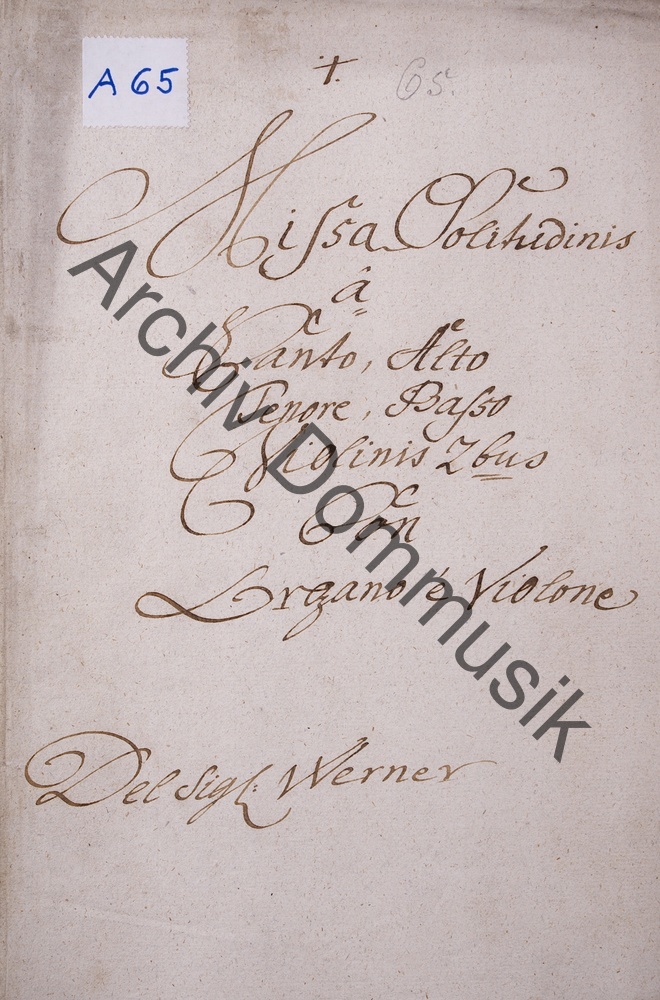 A 65
+.
65.
Missa Solitudinis
â
Canto, Alto
Tenore, Basso
Violinis 2bus
Con
Organo è Violone
Del Sigl: Werner
Archiv Dommusik